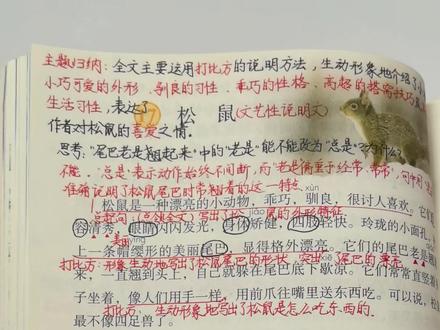 主题归纳:全文主要运用打比方的说明方法,生动形象地介绍了小
小巧可爱的外形、驯良的习性、乖巧的性格、高超的搭窝技巧
生活习性,表达了
17 松 鼠(文艺性说明文)
作者对松鼠的喜爱之情。
思考:"尾巴老是翘起来"中的"老是"能不能改为"总是"?为什么?
不能。"总是"表示动作始终不间断,而"老是"侧重于经常、常常,
准确说明了松鼠尾巴时常翘着的这一特点。xùn
松鼠是一种漂亮的小动物,乖巧,驯良,很讨人喜欢。它们
总起句(总领全文)写出了松鼠的外形特征
容清秀,眼睛闪闪发光,身体矫健,四肢轻快。玲珑的小面孔,
上一条帽缨形的美丽尾巴,显得格外漂亮。它们的尾巴老是翘
打比方:形象生动地写出了松鼠尾巴的形状,突出尾巴的漂亮
来,一直翘到头上,自己就躲在尾巴底下歇凉。它们常常直竖着
子坐着,像人们用手一样,用前爪往嘴里送东西吃。可以说,松
打比方:生动形象地写出了松鼠是怎么吃东西的。
最不像四足兽了。